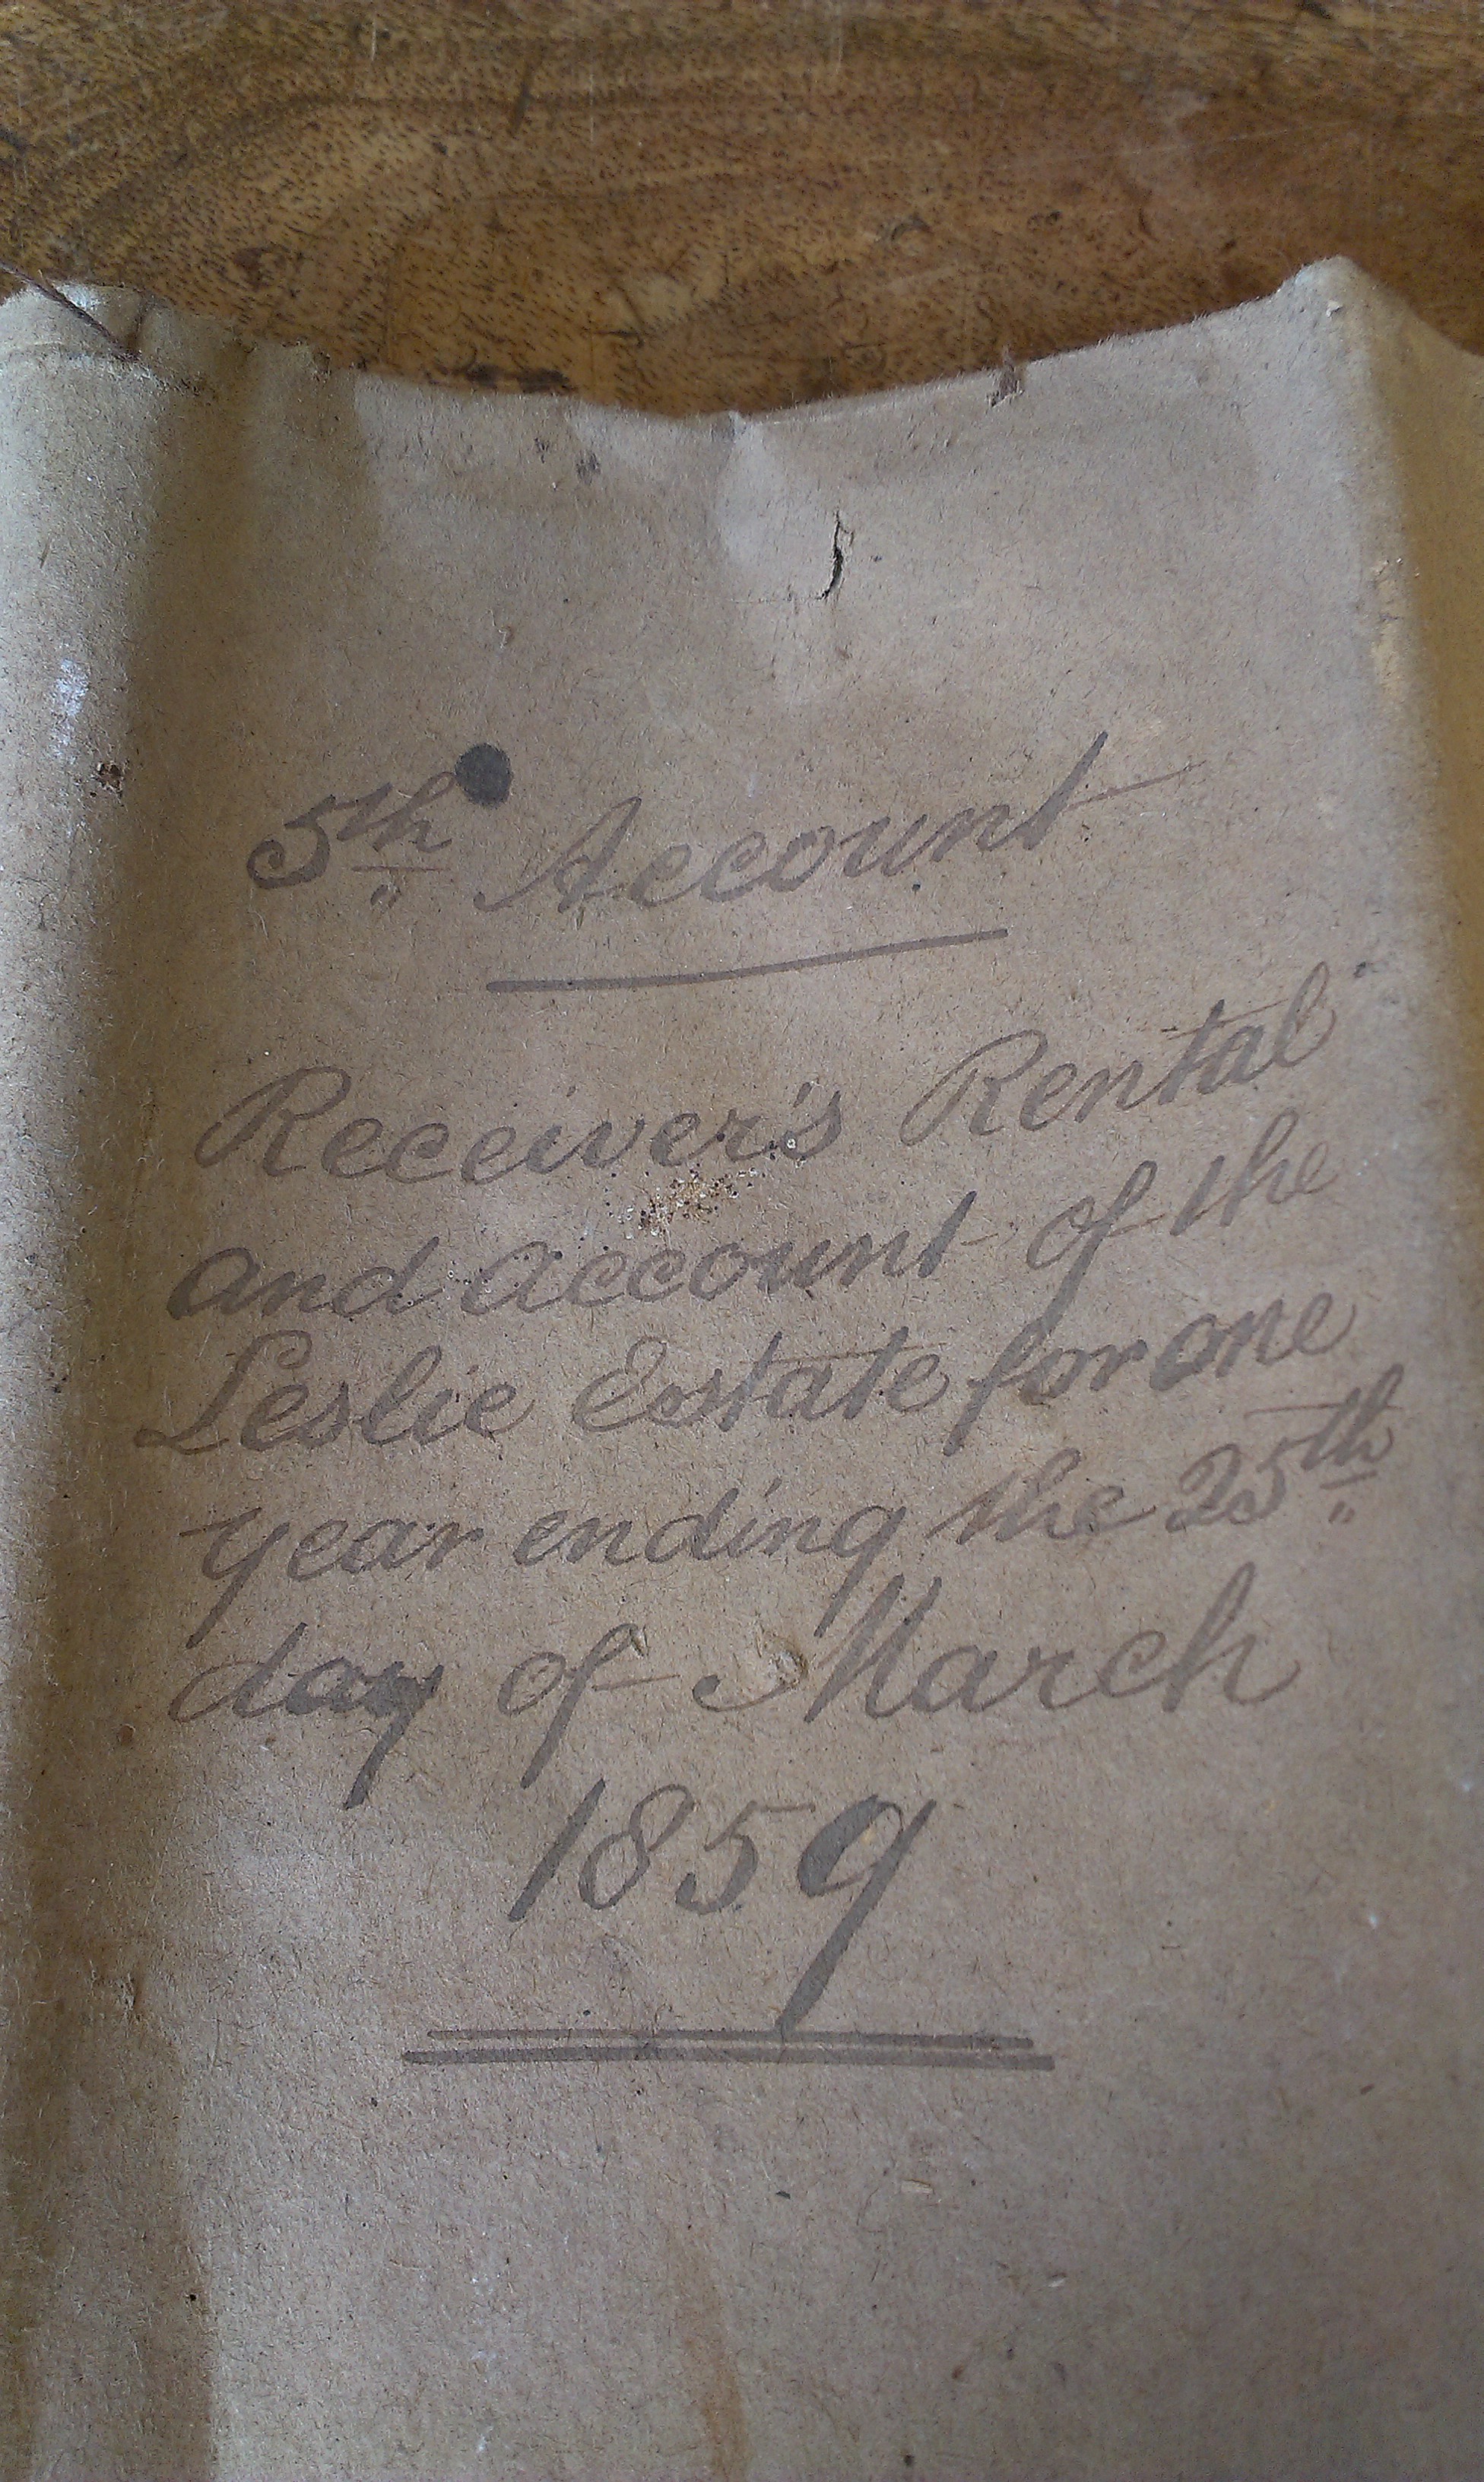 5th Account
Receiver's Rental
and account of the
Leslie Estate for one
year ending the 25th
day of March
1859